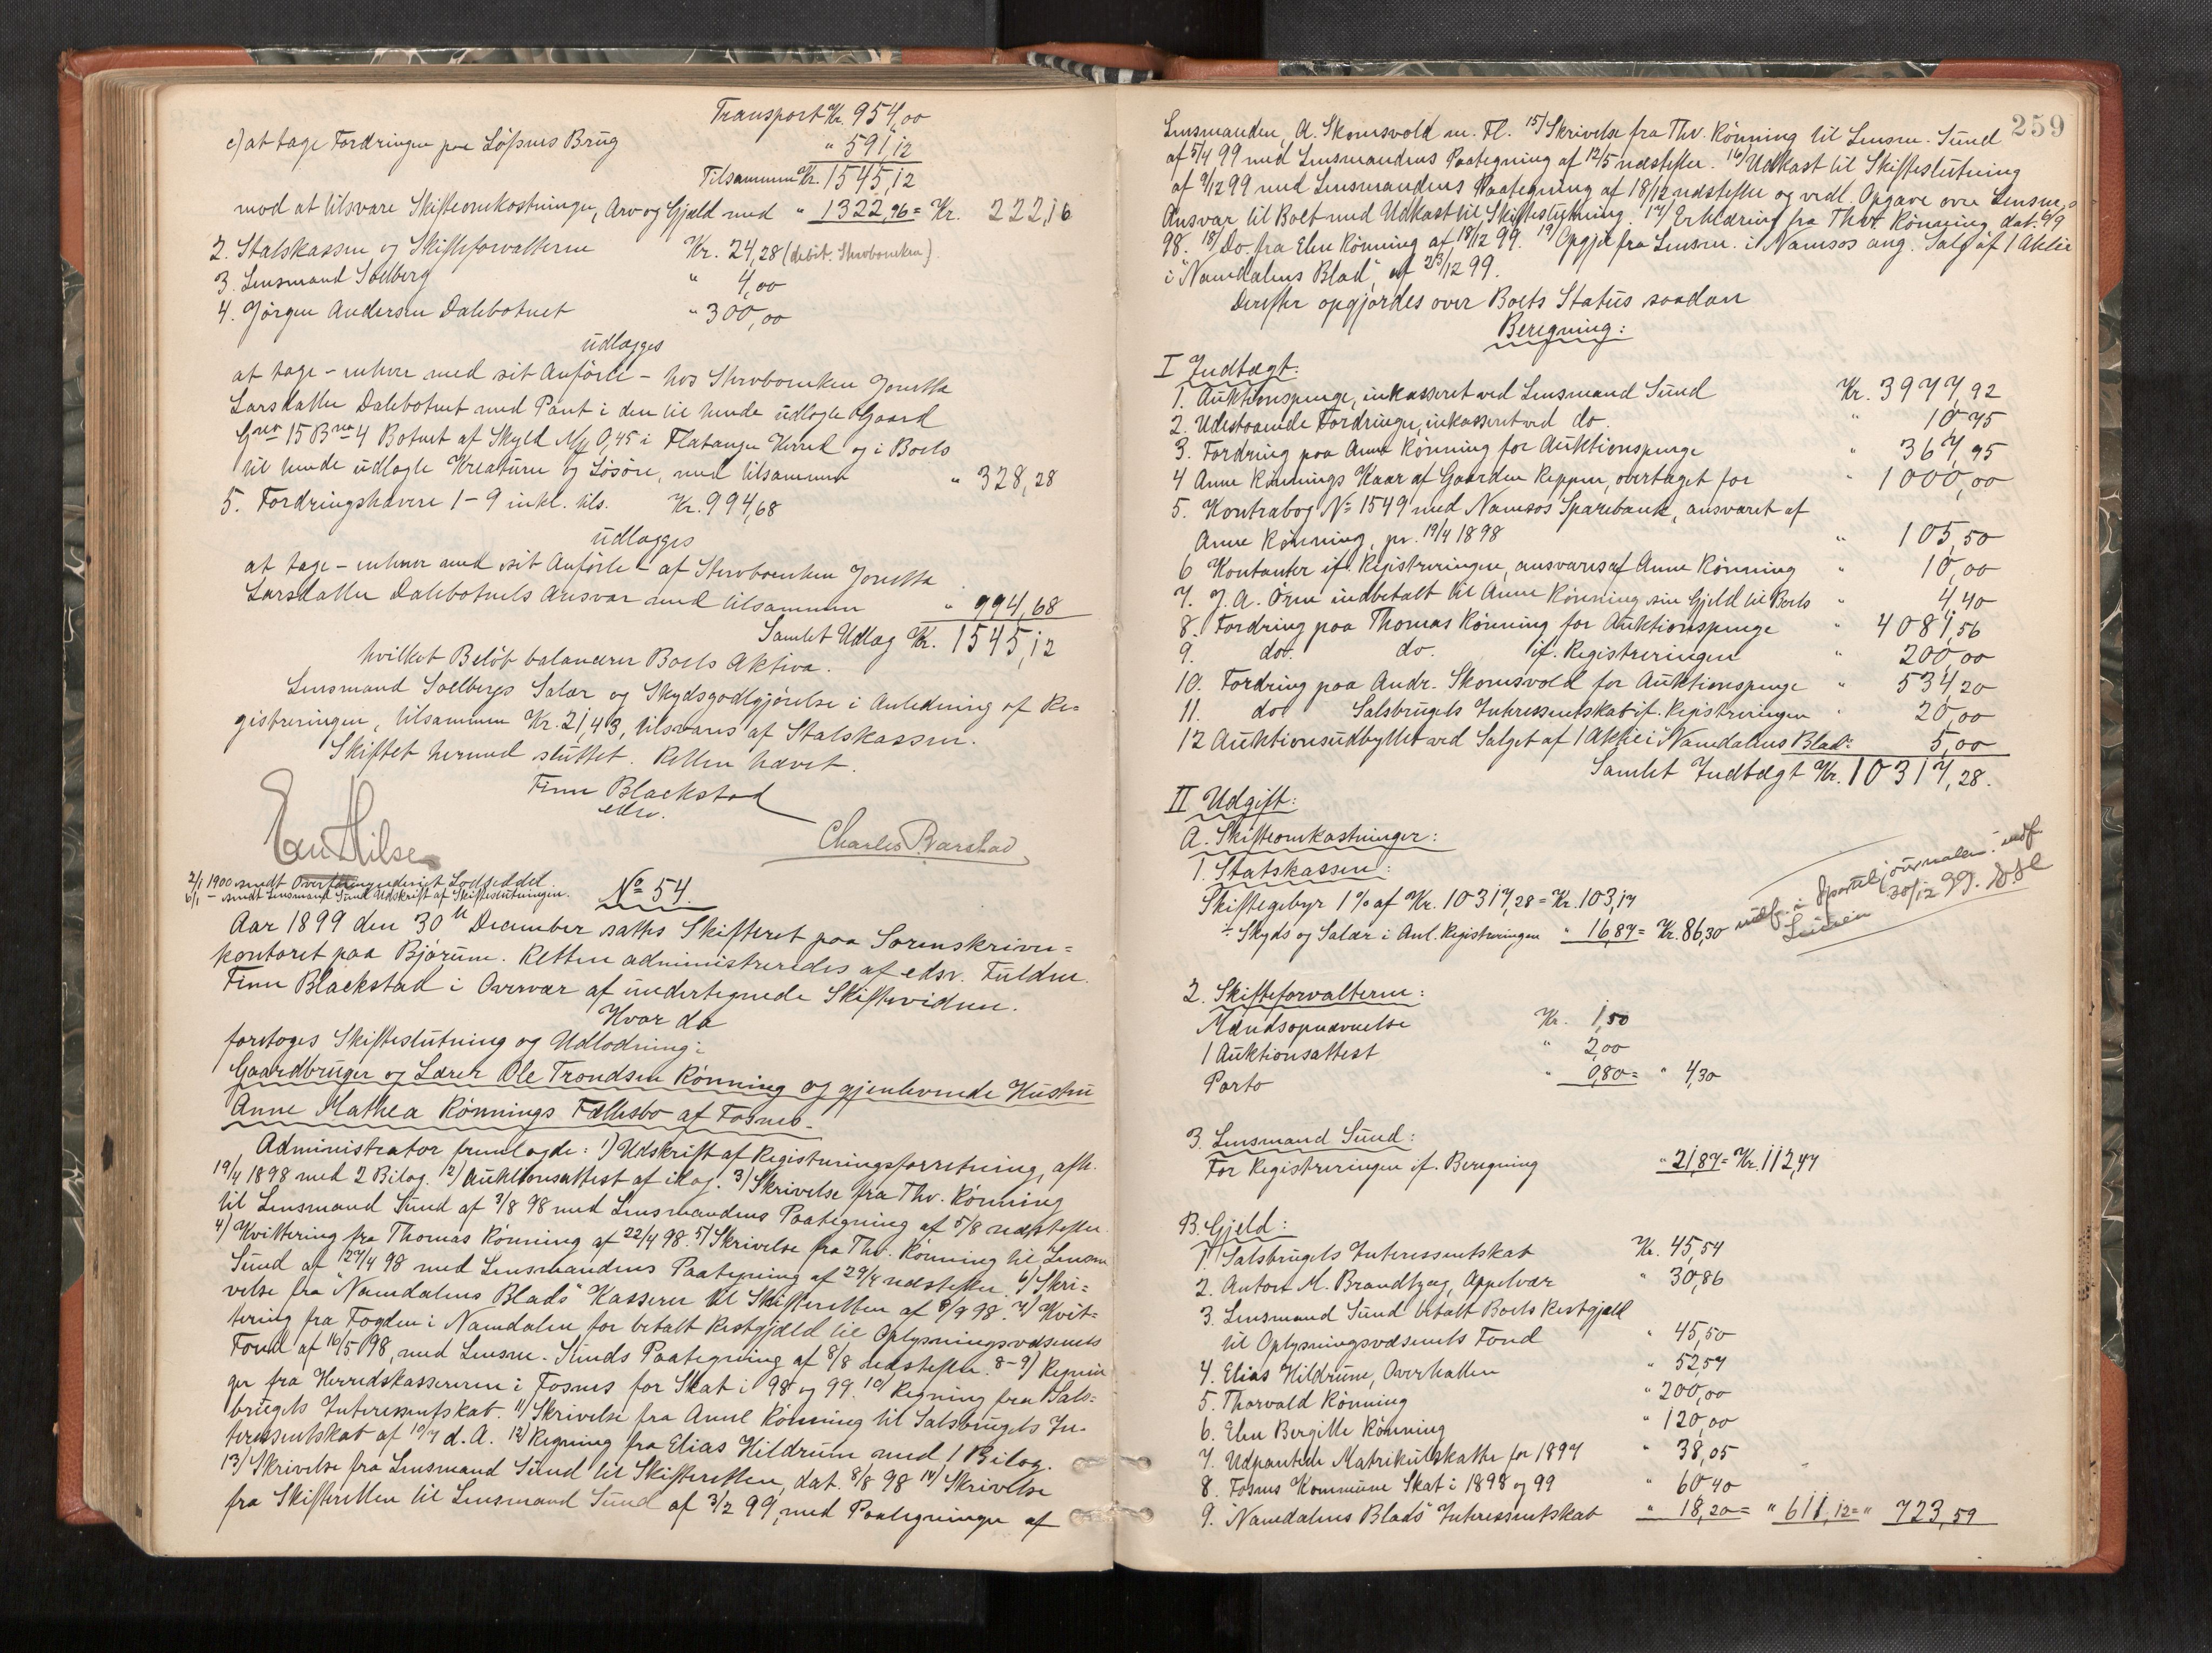 Transport Kr. 954,00
c) at tage Fordringen paa Löfsnes Brug " 591,12
Tilsammen Kr. 1545,12
mod at tilsvare Skifteomkostninger, Arv og Gjæld med " 1322,96 = Kr. 222,16
2. Statskassen og Skifteforvalteren Kr. 24,28 (debit. Stervboenken).
3. Lensmand Solberg " 4,00
4. Jörgen Andersen Dalebotnet " 300,00
udlægges
at tage - enhver med sit Anförte - hos Stervboenken Jonetta
Larsdatter Dalebotnet med Pant i den til hende udlagte Gaard
Gno 15 Bno 4 Botnet af Skyld My 0,45 i Flatanger Herred og i Boets
til hende udlagte Kreaturer og Lösöre, med tilsammen " 328,28
5. Fordringshavere 1-9 inkl. tils. Kr. 994,68
udlægges
at tage - enhver med sit Anförte - af Stervboenken Jonetta
Larsdatter Dalebotnets Ansvar med tilsammen " 994,68
Samlet Udlæg Kr. 1545,12
hvilket Belöb balancerer Boets Aktiva.
Lensmand Solbergs Salær og Skydsgodtgjörelse i Anledning af Re-
gistreringen, tilsammen Kr. 21,43, tilsvares af Statskassen.
Skiftet hermed sluttet. Retten hævet.
Finn Blackstad
edsv.
Charles Barstad
2/1 1900 sendt Overformynderiet Lodseddel.
6/1 - sendt Lensmand Sund Udskrift af Skifteslutningen.
No 54.
Aar 1899 den 30te December sattes Skifteret paa Sorenskriver-
kontoret paa Björum. Retten administreredes af edsv. Fuldm.
Finn Blackstad i Overvær af undertegnede Skiftevidner.
Hvor da
foretoges Skifteslutning og Udlodning i
Gaardbruger og Lærer Ole Trondsen Rönning og gjenlevende Hustru
Anne Mathea Rönnings Fællesbo af Fosnes.
Administrator fremlagde: 1) Udskrift af Registreringsforretning, afh.
19/4 1898 med 2 Bilag. 2) Auktionsattest af idag. 3) Skrivelse fra Thv. Rönning
til Lensmand Sund af 3/8 98 med Lensmandens Paategning af 5/8 næstefter.
4) Kvittering fra Thomas Rönning af 22/4 98. 5) Skrivelse fra Thv. Rönning til Lensm.
Sund af 27/4 98 med Lensmandens Paategning af 29/4 næstefter. 6) Skri-
velse fra "Namdalens Blads" Kasserer til Skifteretten af 8/9 98. 7) Kvit-
tering fra Fogden i Namdalen for betalt Restgjæld til Oplysningsvæsenets
Fond af 16/5 98, med Lensm. Sunds Paategning af 8/8 næstefter. 8-9) Regnin
ger fra Herredskassereren i Fosnes for Skat i 98 og 99. 10) Regning fra Sals-
brugets Interessentskab. 11) Skrivelse fra Anne Rönning til Salsbrugets In-
teressentskab af 10/7 d. A. 12) Regning fra Elias Hildrum med 1 Bilag.
13) Skrivelse fra Lensmand Sund til Skifteretten, dat. 8/8 98 14) Skrivelse
fra Skifteretten til Lensmand Sund af 3/2 99, med Paategninger af
259
Lensmanden, A. Skomsvold m. Fl. 15) Skrivelse fra Thv. Rönning til Lensm. Sund
af 5/4 99 med Lensmandens Paategning af 12/5 næstefter. 16) Udkast til Skifteslutning
af 9/12 99 med Lensmandens Paategning af 18/12 næstefter og vedl. Opgave over Lensm.s
Ansvar til Boet med Udkast til Skifteslutning. 17) Erklæring fra Thv. Rönning dat. 6/9
98. 18) Do. fra Elen Rönning af 18/12 99. 19) Opgjör fra Lensm. i Namsos ang. Salg af 1 Aktie
i "Namdalens Blad", af 23/12 99.
Derefter opgjordes over Boets Status saadan
Beregning:
I Indtægt:
1. Auktionspenge, inkasseret ved Lensmand Sund Kr. 3977,92
2. Udestaaende Fordringer, inkasseret ved do. " 10,75
3. Fordring paa Anne Rönning for Auktionspenge " 367,95
4 Anne Rönnings Kaar af Gaarden Reppen, overtaget for " 1000,00
5. Kontrabog No 1549 med Namsos Sparebank, ansvaret af
Anne Rönning, pr. 19/4 1898 " 105,50
6 Kontanter if. Registreringen, ansvares af Anne Rönning " 10,00
7. J. A. Örne indbetalt til Anne Rönning sin Gjeld til Boet " 4,40
8. Fordring paa Thomas Rönning for Auktionspenge " 4081,56
9. do. do. if. Registreringen " 200,00
10. Fordring paa Andr. Skomsvold for Auktionspenge " 534,20
11. do Salsbrugets Interessentskab if. Registreringen " 20,00
12 Auktionsudbyttet ved Salget af 1 Aktie i "Namdalens Blad" 5,00
Samlet Indtægt Kr. 10317,28.
II Udgift:
A. Skifteomkostninger:
1. Statskassen:
Skiftegebyr 1% af Kr. 10317,28 = Kr. 103,17
÷ Skyds og Salær i Anl. Registreringen " 16,87 = Kr. 86,30
indf. i Sporteljournalen
30/12 99.
2. Skifteforvalteren:
Mændsopnævnelse Kr. 1,50
1 Auktionsattest " 2,00
Porto " 0,80 = " 4,30
3. Lensmand Sund:
For Registreringen if. Beregning " 21,87 = Kr. 112,47
B. Gjeld:
1. Salsbrugets Interessentskab Kr. 45,54
2. Anton M. Brandtzæg, Appelvær " 30,86
3. Lensmand Sund betalt Boets Restgjæld
til Oplysningsvæsenets Fond " 45,50
4. Elias Hildrum, Overhallen " 52,57
5. Thorvald Rönning " 200,00
6. Elen Bergitte Rönning " 120,00
7. Udpantede Matrikulskatter for 1897 " 38,05
8. Fosnes Kommune Skat i 1898 og 99 " 60,40
9. "Namdalens Blads" Interessentskab " 18,20 = " 611,12 = " 723,59